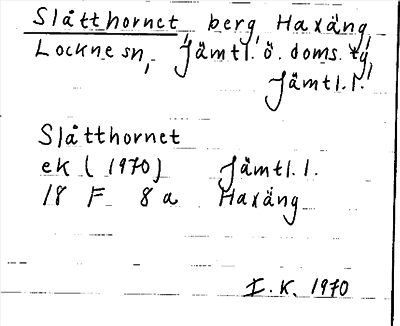 Slåtthornet berg, Haxäng,
Lockne sn, Jämtl. ö. doms. tg,
Jämtl. l.
Slåtthornet
ek (1970) Jämtl. l.
18 F 8a Haxäng
I. K. 1970